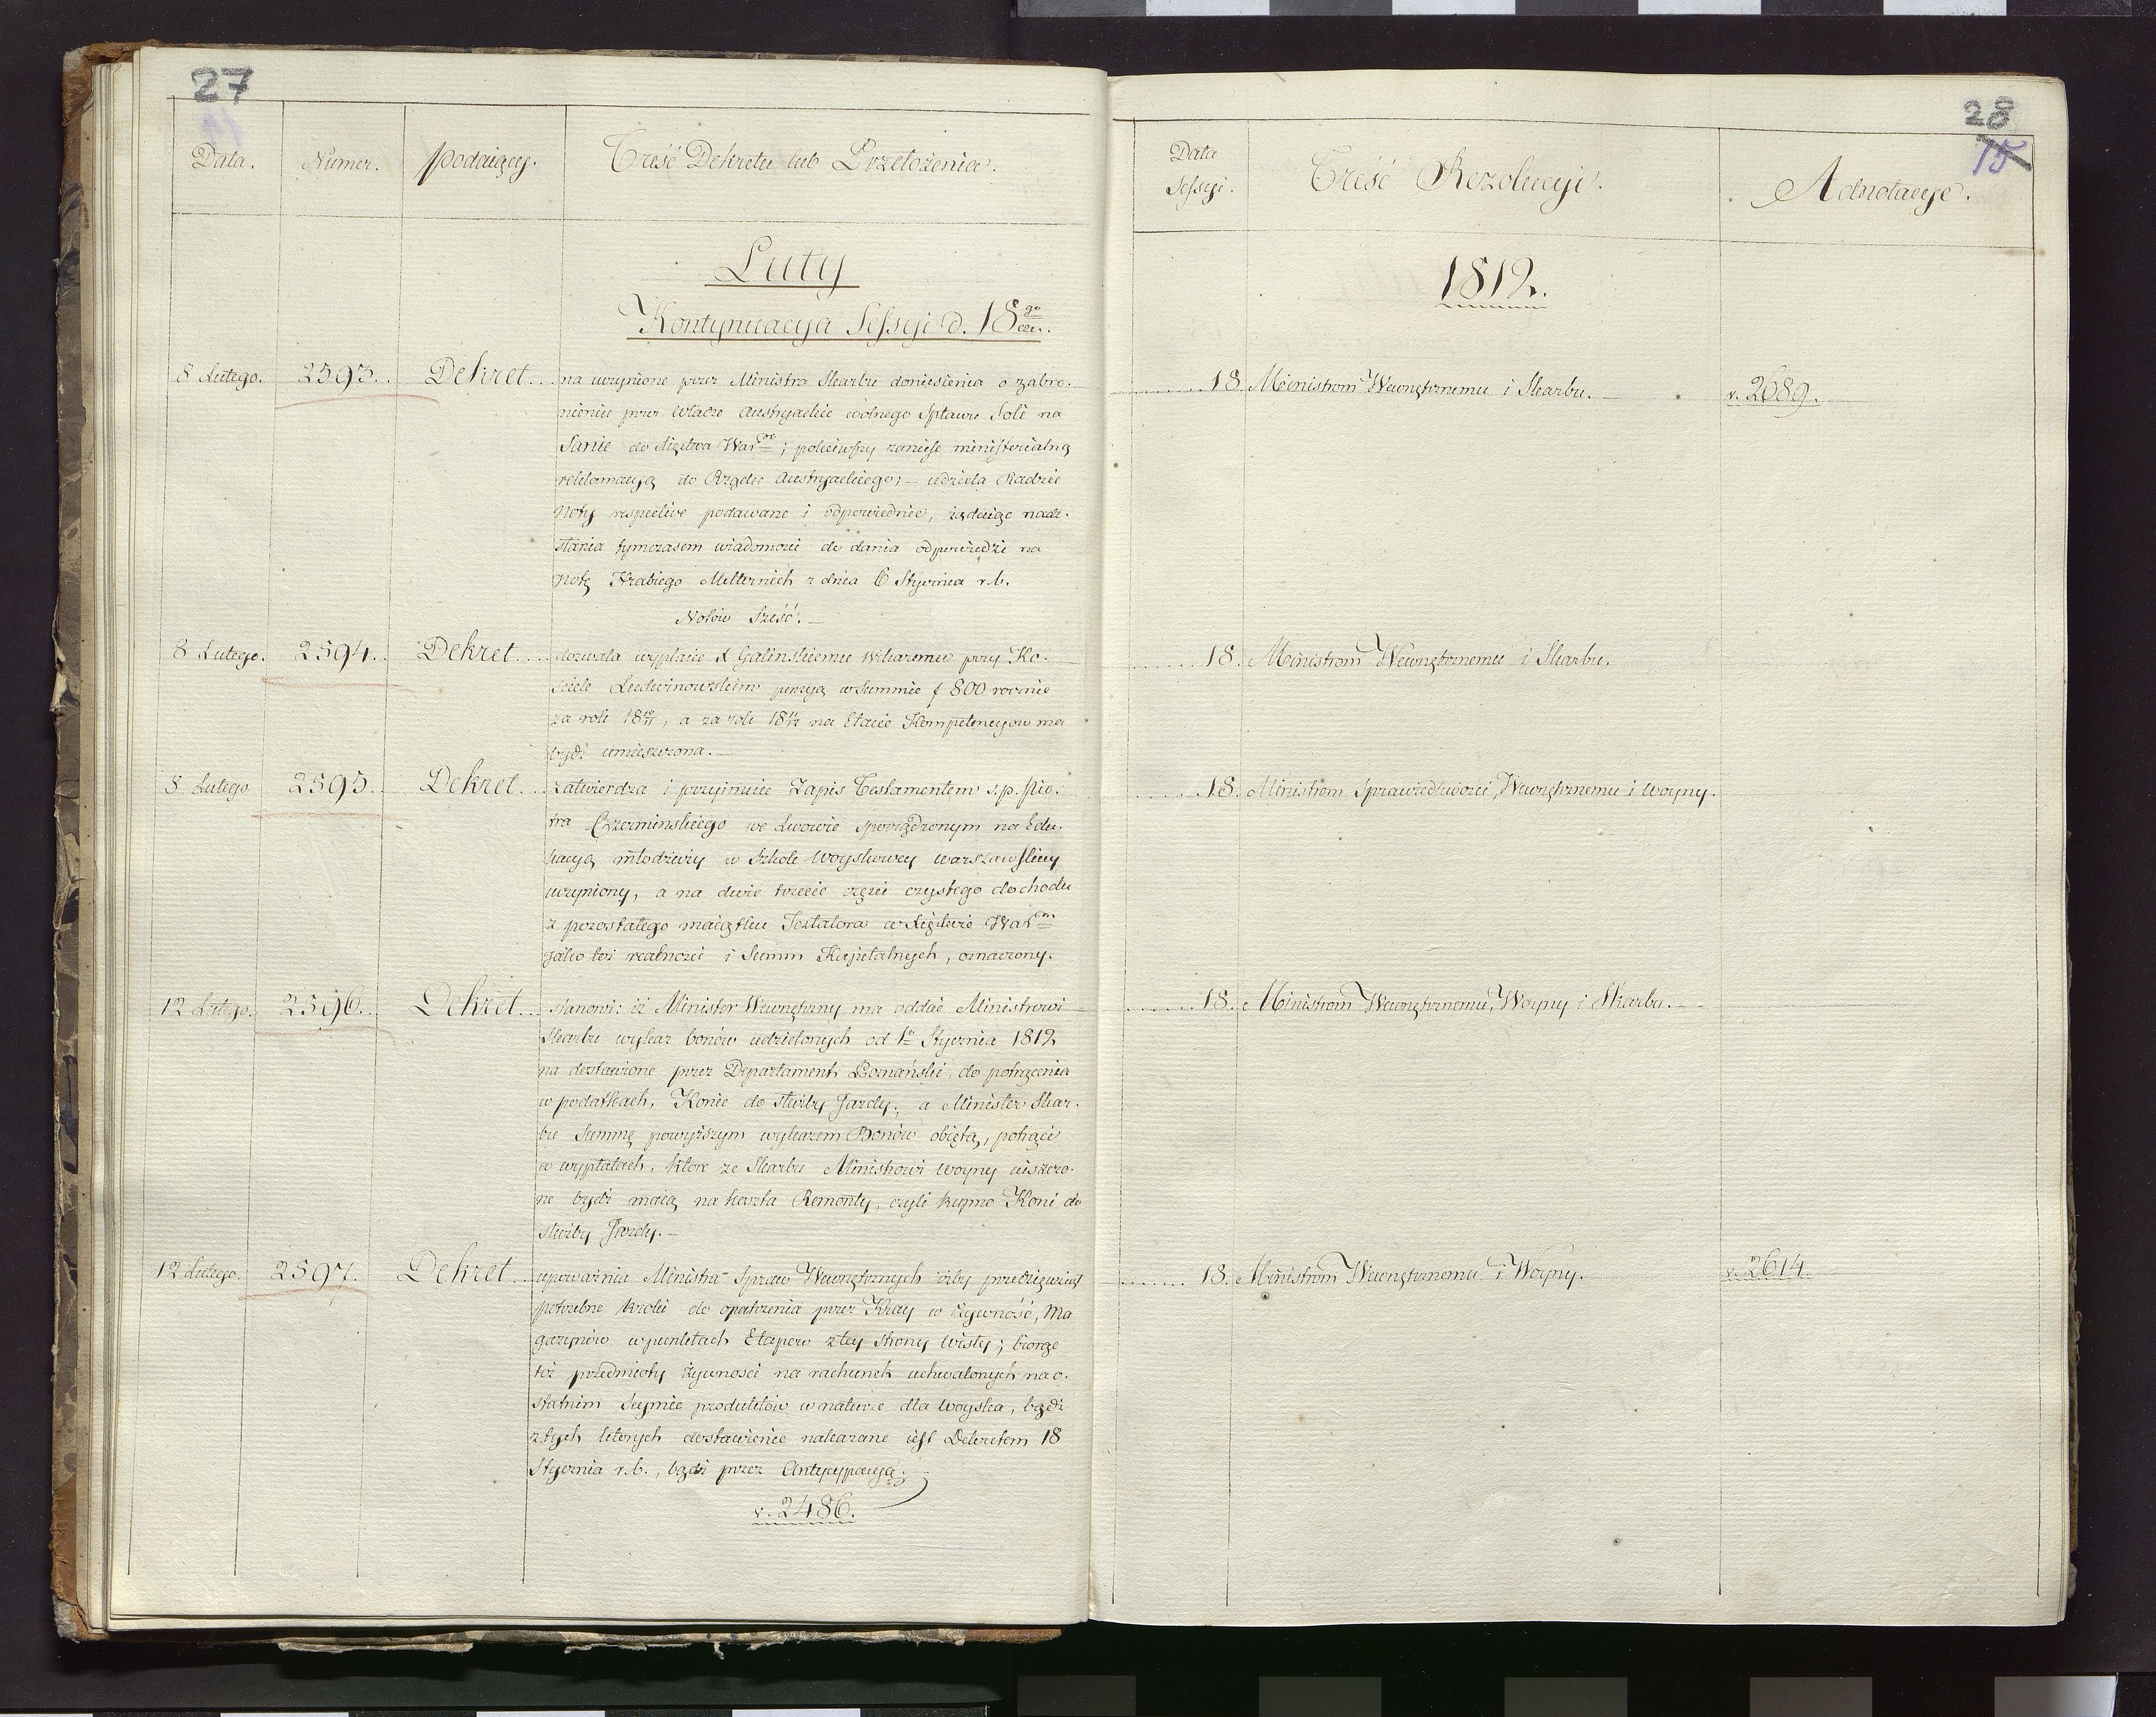 27
Data. Numer. podaiący. Treść Dekretu lub Przełożenia.
Luty
Kontynuacyia Sessyi d. 18go
8 Lutego. 2593. Dekret... na uczynione przez Ministra Skarbu doniesienia o zabro-
nieniu przez władze Austryackie wolnego Spławu Soli na
Sanie do Xięztwa Wargo; poleciwszy zanieść ministerialną
reklamacyą do Rządu Austryackiego; — udziela Radzie
Noty respective podawane i odpowiednie, żądaiąc nade-
słania tymczasem wiadomości do dania odpowiedzi na
notę Hrabiego Metternich z dnia 6 Stycznia r.b.
Notów Sześć. —
8 Lutego. 2594. Dekret.... dozwala wypłacić X Galinskiemu Wikaremu przy Ko-
ściele Ludwinowskim pensyą w summie f 800 rocznie
za rok 18 10/11, a za rok 18 11/12 na Etacie Kompetencyow ma
bydź umieszczona. —
8 Lutego 2595. Dekret... zatwierdza i przyimuie Zapis Testamentem s.p. Pio-
tra Czerminskiego we Lwowie sporządzonym na Edu-
kacyą młodzieży w Szkole Woyskowey warszawskiey
uczyniony, a na dwie trzecie części czystego dochodu
z pozostałego maiątku Testatora w Xięztwie Warm
jako też realności i Summ Kapitalnych, oznaczony.
12 Lutego. 2596. Dekret... stanowi: iż Minister Wewnętrzny ma oddać Ministrowi
Skarbu wykaz bonów udzielonych od 1o Stycznia 1812
na dostawione przez Departament Poznański, do potrącenia
w podatkach, Konie do służby Jazdy; a Minister Skar-
bu Summę powyższym wykazem Bonów obiętą, potrąci
w wypłatach, które ze Skarbu Ministrowi Woyny uiszczo-
ne bydź maią na koszta Remonty, czyli kupno Koni do
służby Jazdy. —
12 Lutego. 2597. Dekret... upoważnia Ministra Spraw Wewnętrznych żeby przedsięwziął
potrzebne kroki do opatrzenia przez Kray w żywność, Ma
gazynów w punktach Etapow z tey strony Wisły; biorąc
też przedmioty żywności na rachunek uchwalonych na o-
statnim Seymie produktów w naturze dla woyska, bądź
z tych których dostawienie nakazane iest Dekretem 18
Stycznia r.b., bądź przez Antycypacyą.
v. 2486.
28
15
Data Sessyi. Treść Rezolucyi. Adnotacye.
1812.
18. Ministrom Wewnętrznemu i Skarbu. — v. 2689.
18. Ministrom Wewnętrznemu i Skarbu.
18. Ministrom Sprawiedliwości, Wewnętrznemu i woyny.
18. Ministrom Wewnętrznemu, Woyny i Skarbu. —
18. Ministrom Wewnętrznemu i Woyny. v. 2614.